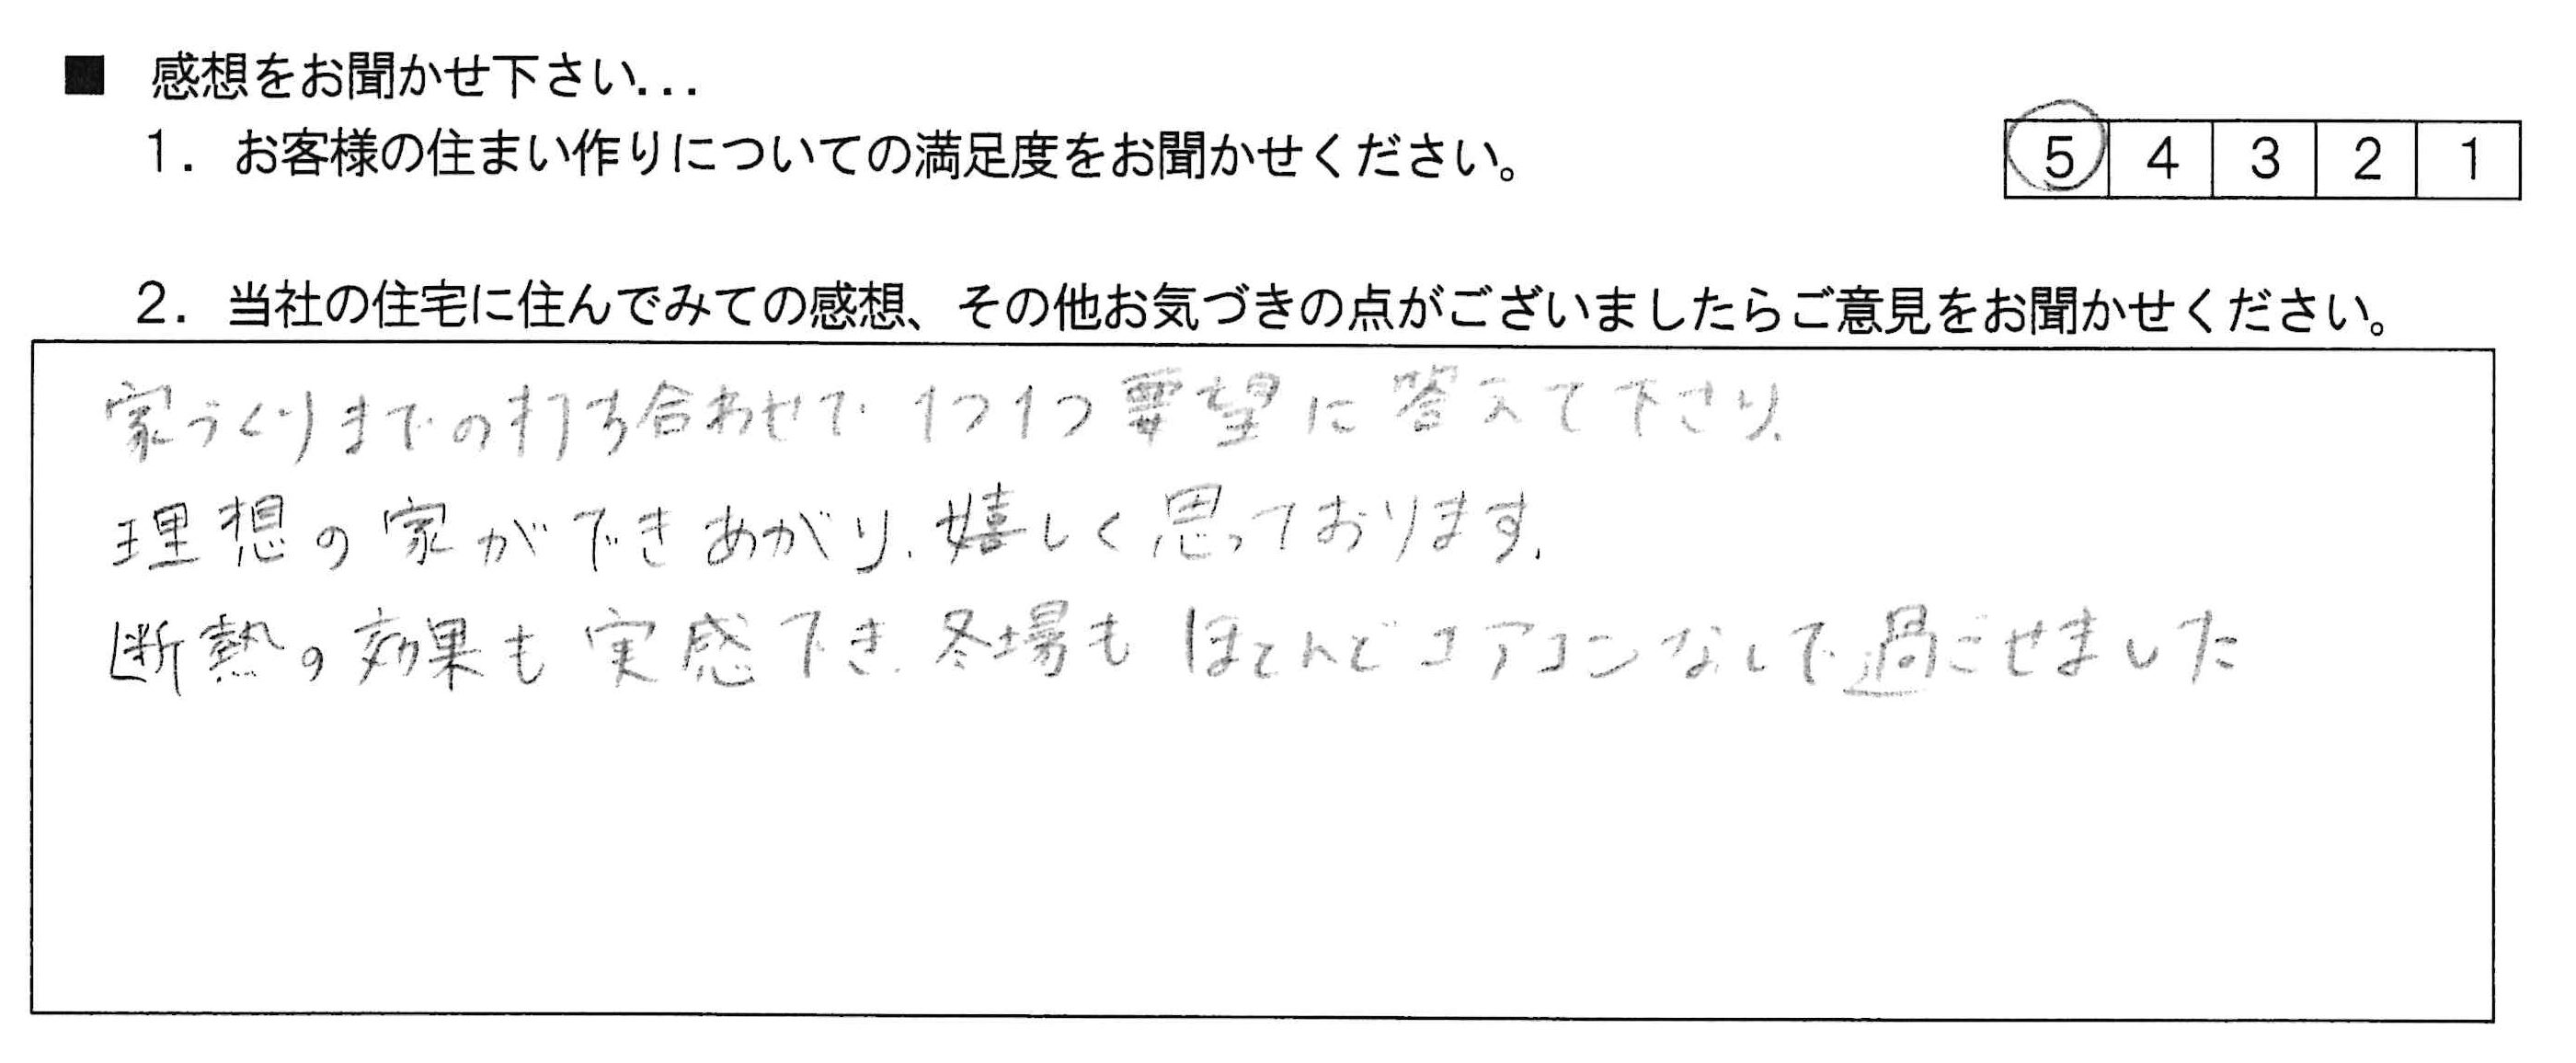 ■ 感想をお聞かせ下さい...
1. お客様の住まい作りについての満足度をお聞かせください。 5 4 3 2 1
2. 当社の住宅に住んでみての感想、その他お気づきの点がございましたらご意見をお聞かせください。
家づくりまでの打ち合わせで 1つ1つ要望に答えて下さり、
理想の家ができあがり、嬉しく思っております。
断熱の効果も実感でき、冬場もほとんどエアコンなしで過ごせました